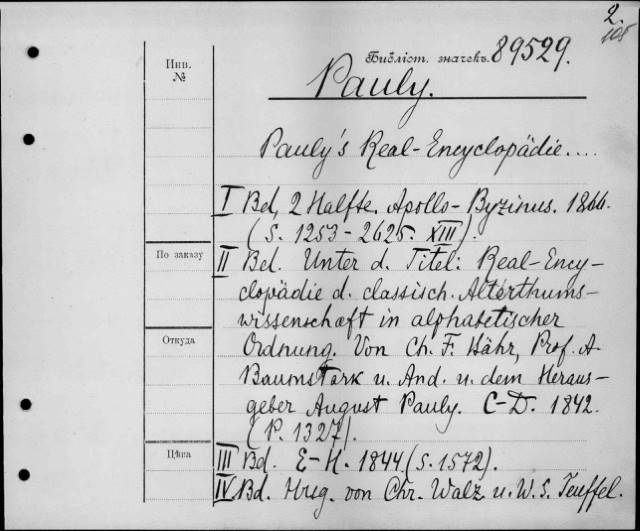 2.
105
Инв.
№
Библіот. значекъ 89529.
Pauly.
Pauly's Real-Encyclopädie....
I Bd, 2 Halfte. Apollo-Byzinus. 1866.
(S. 1253-2625. XIII).
По заказу
II Bd. Unter d. Titel: Real-Ency-
clopädie d. classisch. Alterthums-
wissenschaft in alphabetischer
Откуда
Ordnung. Von Ch. F. Bähr, Prof. A
Baumstark u. And. u. dem Heraus-
geber August Pauly. C-D. 1842.
(P. 1327).
Цѣна
III Bd. E-H. 1844. (S. 1572).
IV Bd. Hrsg. von Chr. Walz u. W. S. Teuffel.